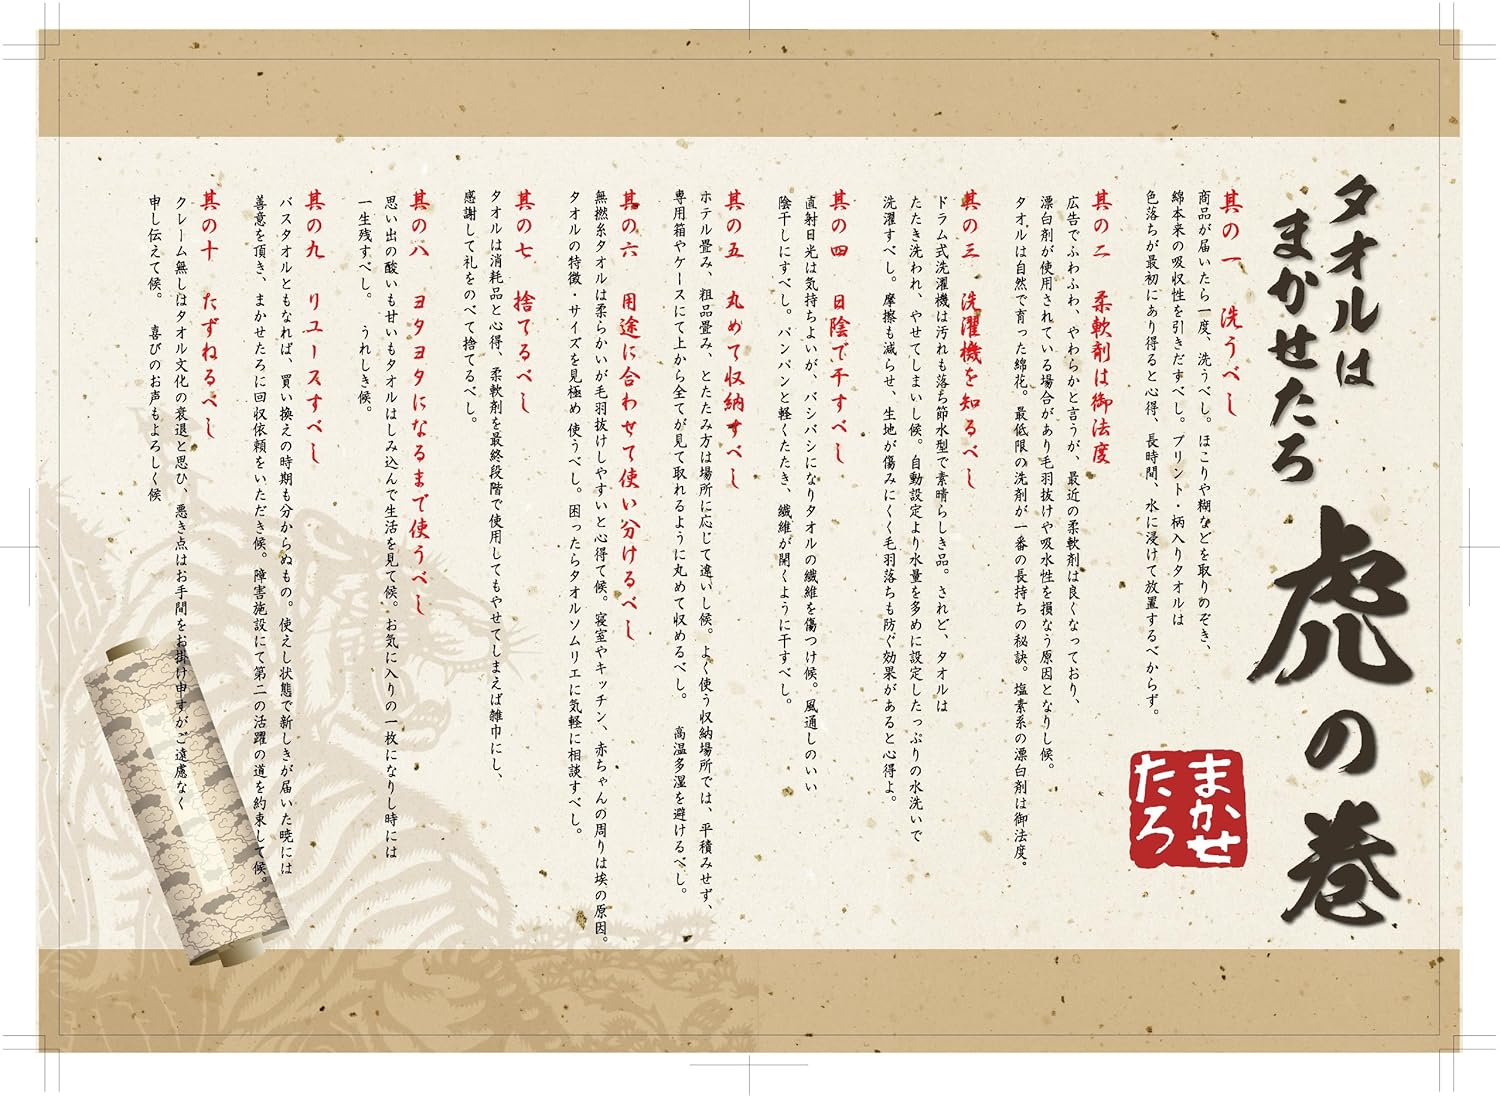 タオルは
まかせたろ
虎の巻
まかせ
たろ
其の一　洗うべし
商品が届いたら一度、洗うべし。ほこりや糊などを取りのぞき、
綿本来の吸収性を引きだすべし。プリント・柄入りタオルは
色落ちが最初にあり得ると心得、長時間、水に浸けて放置するべからず。
其の二　柔軟剤は御法度
広告でふわふわ、やわらかと言うが、最近の柔軟剤は良くなっており、
漂白剤が使用されている場合があり毛羽抜けや吸水性を損なう原因となりし候。
タオルは自然で育った綿花。最低限の洗剤が一番の長持ちの秘訣。塩素系の漂白剤は御法度。
其の三　洗濯機を知るべし
ドラム式洗濯機は汚れも落ち節水型で素晴らしき品。されど、タオルは
たたき洗われ、やせてしまいし候。自動設定より水量を多めに設定したっぷりの水洗いで
洗濯すべし。摩擦も減らせ、生地が傷みにくく毛羽落ちも防ぐ効果があると心得よ。
其の四　日陰で干すべし
直射日光は気持ちよいが、バシバシになりタオルの繊維を傷つけ候。風通しのいい
陰干しにすべし。パンパンと軽くたたき、繊維が開くように干すべし。
其の五　丸めて収納すべし
ホテル畳み、粗品畳み、とたたみ方は場所に応じて違いし候。よく使う収納場所では、平積みせず、
専用箱やケースにて上から全てが見て取れるように丸めて収めるべし。　高温多湿を避けるべし。
其の六　用途に合わせて使い分けるべし
無撚糸タオルは柔らかいが毛羽抜けしやすいと心得て候。寝室やキッチン、赤ちゃんの周りは埃の原因。
タオルの特徴・サイズを見極め使うべし。困ったらタオルソムリエに気軽に相談すべし。
其の七　捨てるべし
タオルは消耗品と心得、柔軟剤を最終段階で使用してもやせてしまえば雑巾にし、
感謝して礼をのべて捨てるべし。
其の八　ヨタヨタになるまで使うべし
思い出の酸いも甘いもタオルはしみ込んで生活を見て候。お気に入りの一枚になりし時には
一生残すべし。　うれしき候。
其の九　リユースすべし
バスタオルともなれば、買い換えの時期も分からぬもの。使えし状態で新しきが届いた暁には
善意を頂き、まかせたろに回収依頼をいただき候。障害施設にて第二の活躍の道を約束して候。
其の十　たずねるべし
クレーム無しはタオル文化の衰退と思ひ、悪き点はお手間をお掛け申すがご遠慮なく
申し伝えて候。　喜びのお声もよろしく候